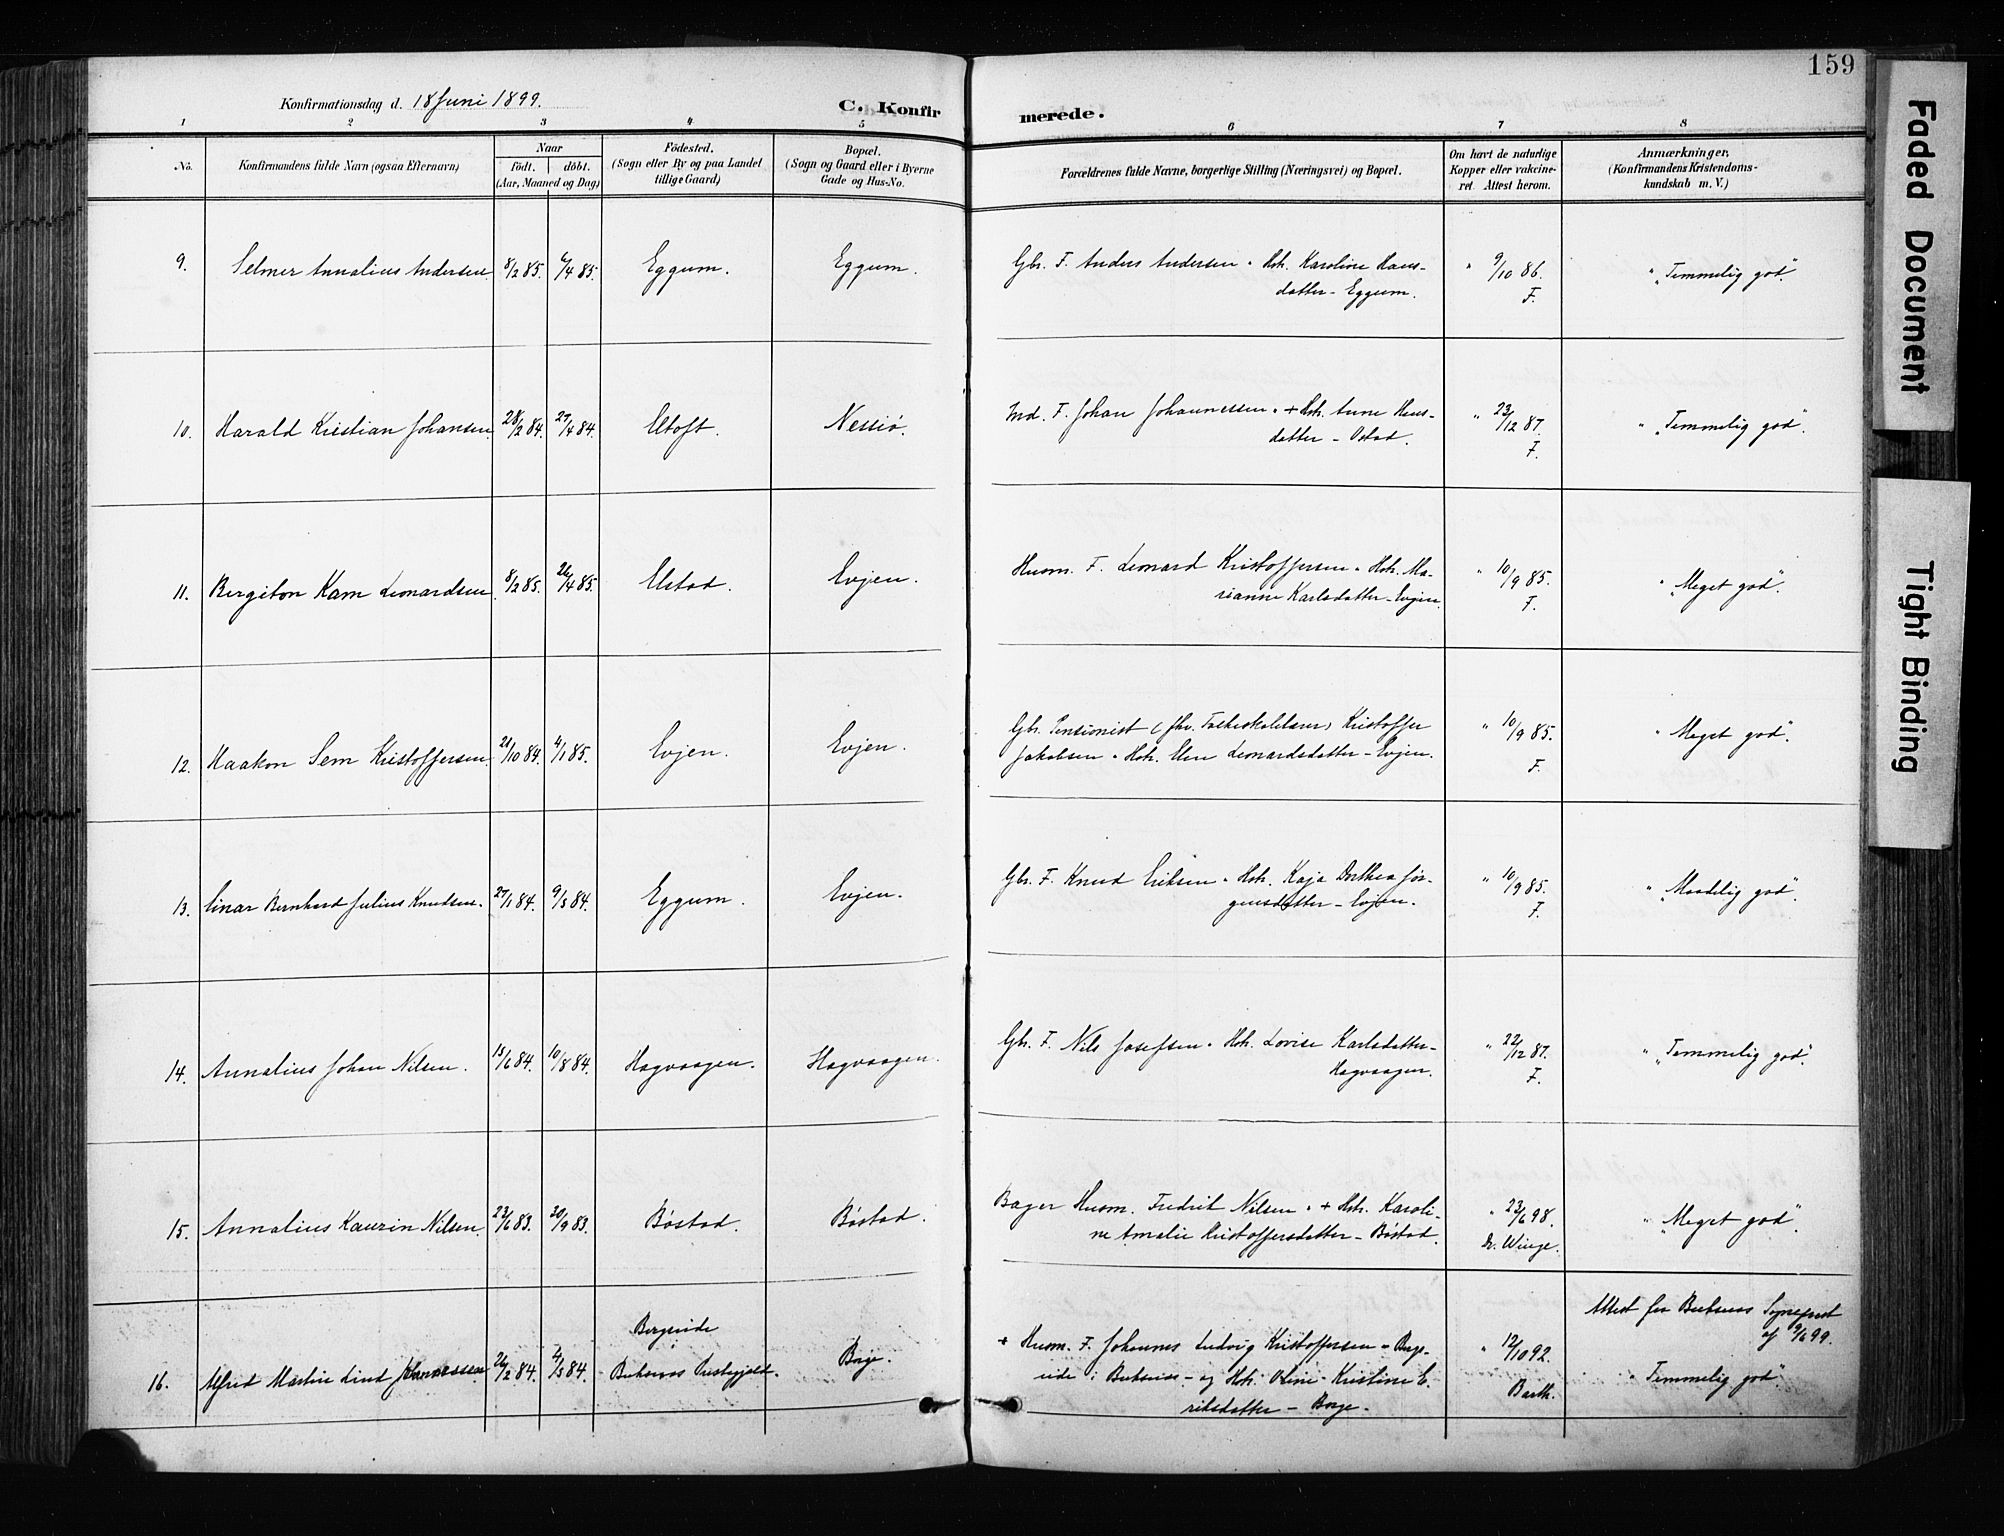 159
Konfirmationsdag d. 18 Juni 1899.
C. Konfirmerede.
1 2 3 4 5 6 7 8
No.
Konfirmandens fulde Navn (ogsaa Efternavn)
Naar
födt. döbt.
(Aar, Maaned og Dag)
Födested.
(Sogn eller By og paa Landet
tillige Gaard)
Bopæl.
(Sogn og Gaard eller i Byerne
Gade og Hus-No.
Forældrenes fulde Navne, borgerlige Stilling (Næringsvei) og Bopæl.
Om havt de naturlige
Kopper eller vakcine-
ret Attest herom.
Anmærkninger,
(Konfirmandens Kristendoms-
kundskab m. V.)
9. Selmer Annalius Andersen 8/2 85. 6/4 85. Eggum. Eggum. Gbr. F. Anders Andersen " Hst. Karoline Hans- " 9/10 86. " „Temmelig god".
datter - Eggum. F.
10. Harald Kristian Johansen 28/2 84. 27/4 84. Eltoft. Nessiø. Ind. F. Johan Johannessen " + Hst. Anne Hans- " 23/12 87. " „Temmelig god".
datter - Ostad. F.
11. Bergiton Kam Leonardsen 8/2 85. 26/4 85. Elstad. Evjen. Husm. F. Leonard Kristoffersen " Hst. Ma- " 10/9 85. " „Meget god".
rianne Karlsdatter - Evjen. F.
12. Haakon Sem Kristoffersen 21/10 84. 4/1 85. Evjen. Evjen. Gbr. Pensionist (fhv. Folkeskolelærer) Kristoffer " 10/9 85. " Meget god".
Jakobsen " Hst. Elen Leonardsdatter - Evjen. F.
13. Einar Bernhard Julius Knudsen. 27/1 84. 9/3 84. Eggum. Evjen. Gbr. F. Knud Eriksen " Hst. Kaja Dorthea Jør- " 10/9 85. " „Maadelig god".
gensdatter - Evjen. F.
14. Annalius Johan Nilsen. 15/6 84. 10/8 84. Hagvaagen. Hagvaagen. Gbr. F. Nils Josefsen " Hst. Lovise Karlsdatter - " 22/12 87. " „Temmelig god".
Hagvaagen. F.
15. Annalius Kaurin Nilsen. 23/6 83. 30/9 83. Bøstad. Bøstad. Bager Husm. Fredrik Nilsen " + Hst. Karoli- " 23/6 98. " „Meget god".
ne Amalie Kristoffersdatter - Bøstad. Dr. Winge.
Attest fra Buksnes Sognepræst
af 9/6 99.
16. Alfred Martin Lind Johannessen 26/2 84. 4/5 84. Bergsvide Borge. + Husm. F. Johannes Ludvig Kristoffersen - Bergs- " 12/10 92.
Buksnes Præstegjeld. vide i Buksnes - og Hst. Oline Kristine E- " Temmelig god".
riksdatter - Borge. Barth.
Faded Document
Tight Binding